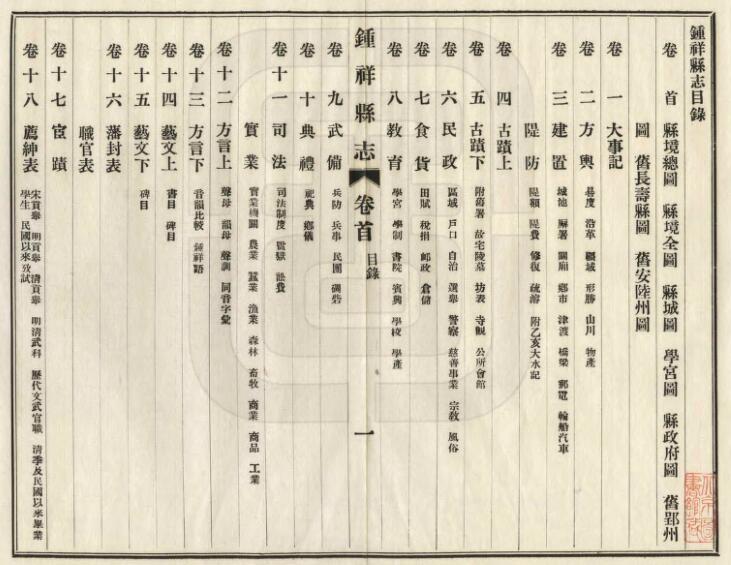 鍾祥縣志目錄
卷首 縣境總圖 縣境全圖 縣城圖 學宮圖 縣政府圖 舊郢州
圖 舊長壽縣圖 舊安陸州圖
卷一 大事記
卷二 方輿 晷度 沿革 疆域 形勝 山川 物產
卷三 建置 城池 廨署 關廂 鄉市 津渡 橋梁 郵電 輪船汽車
隄防 隄額 隄費 修復 疏濬 附乙亥大水記
卷四 古蹟上
卷五 古蹟下 附藩署 故宅陵墓 坊表 寺觀 公所會館
卷六 民政 區域 戶口 自治 選舉 警察 慈善事業 宗教 風俗
卷七 食貨 田賦 稅捐 郵政 倉儲
卷八 教育 學宮 學制 書院 賓興 學校 學產
鍾祥縣志 卷首 目錄 一
卷九 武備 兵防 兵事 民團 碉砦
卷十 典禮 祀典 鄉儀
卷十一 司法 司法制度 監獄 訟費
實業 實業機關 農業 蠶業 漁業 森林 畜牧 商業 商品 工業
卷十二 方言上 聲母 韻母 聲調 同音字彙
卷十三 方言下 音韻比較 鍾祥語
卷十四 藝文上 書目 碑目
卷十五 藝文下 碑目
卷十六 藩封表
職官表
卷十七 宦蹟
卷十八 薦紳表 宋貢舉 明貢舉 清貢舉 明清武科 歷代文武官職 清季及民國以來畢業
學生 民國以來攷試